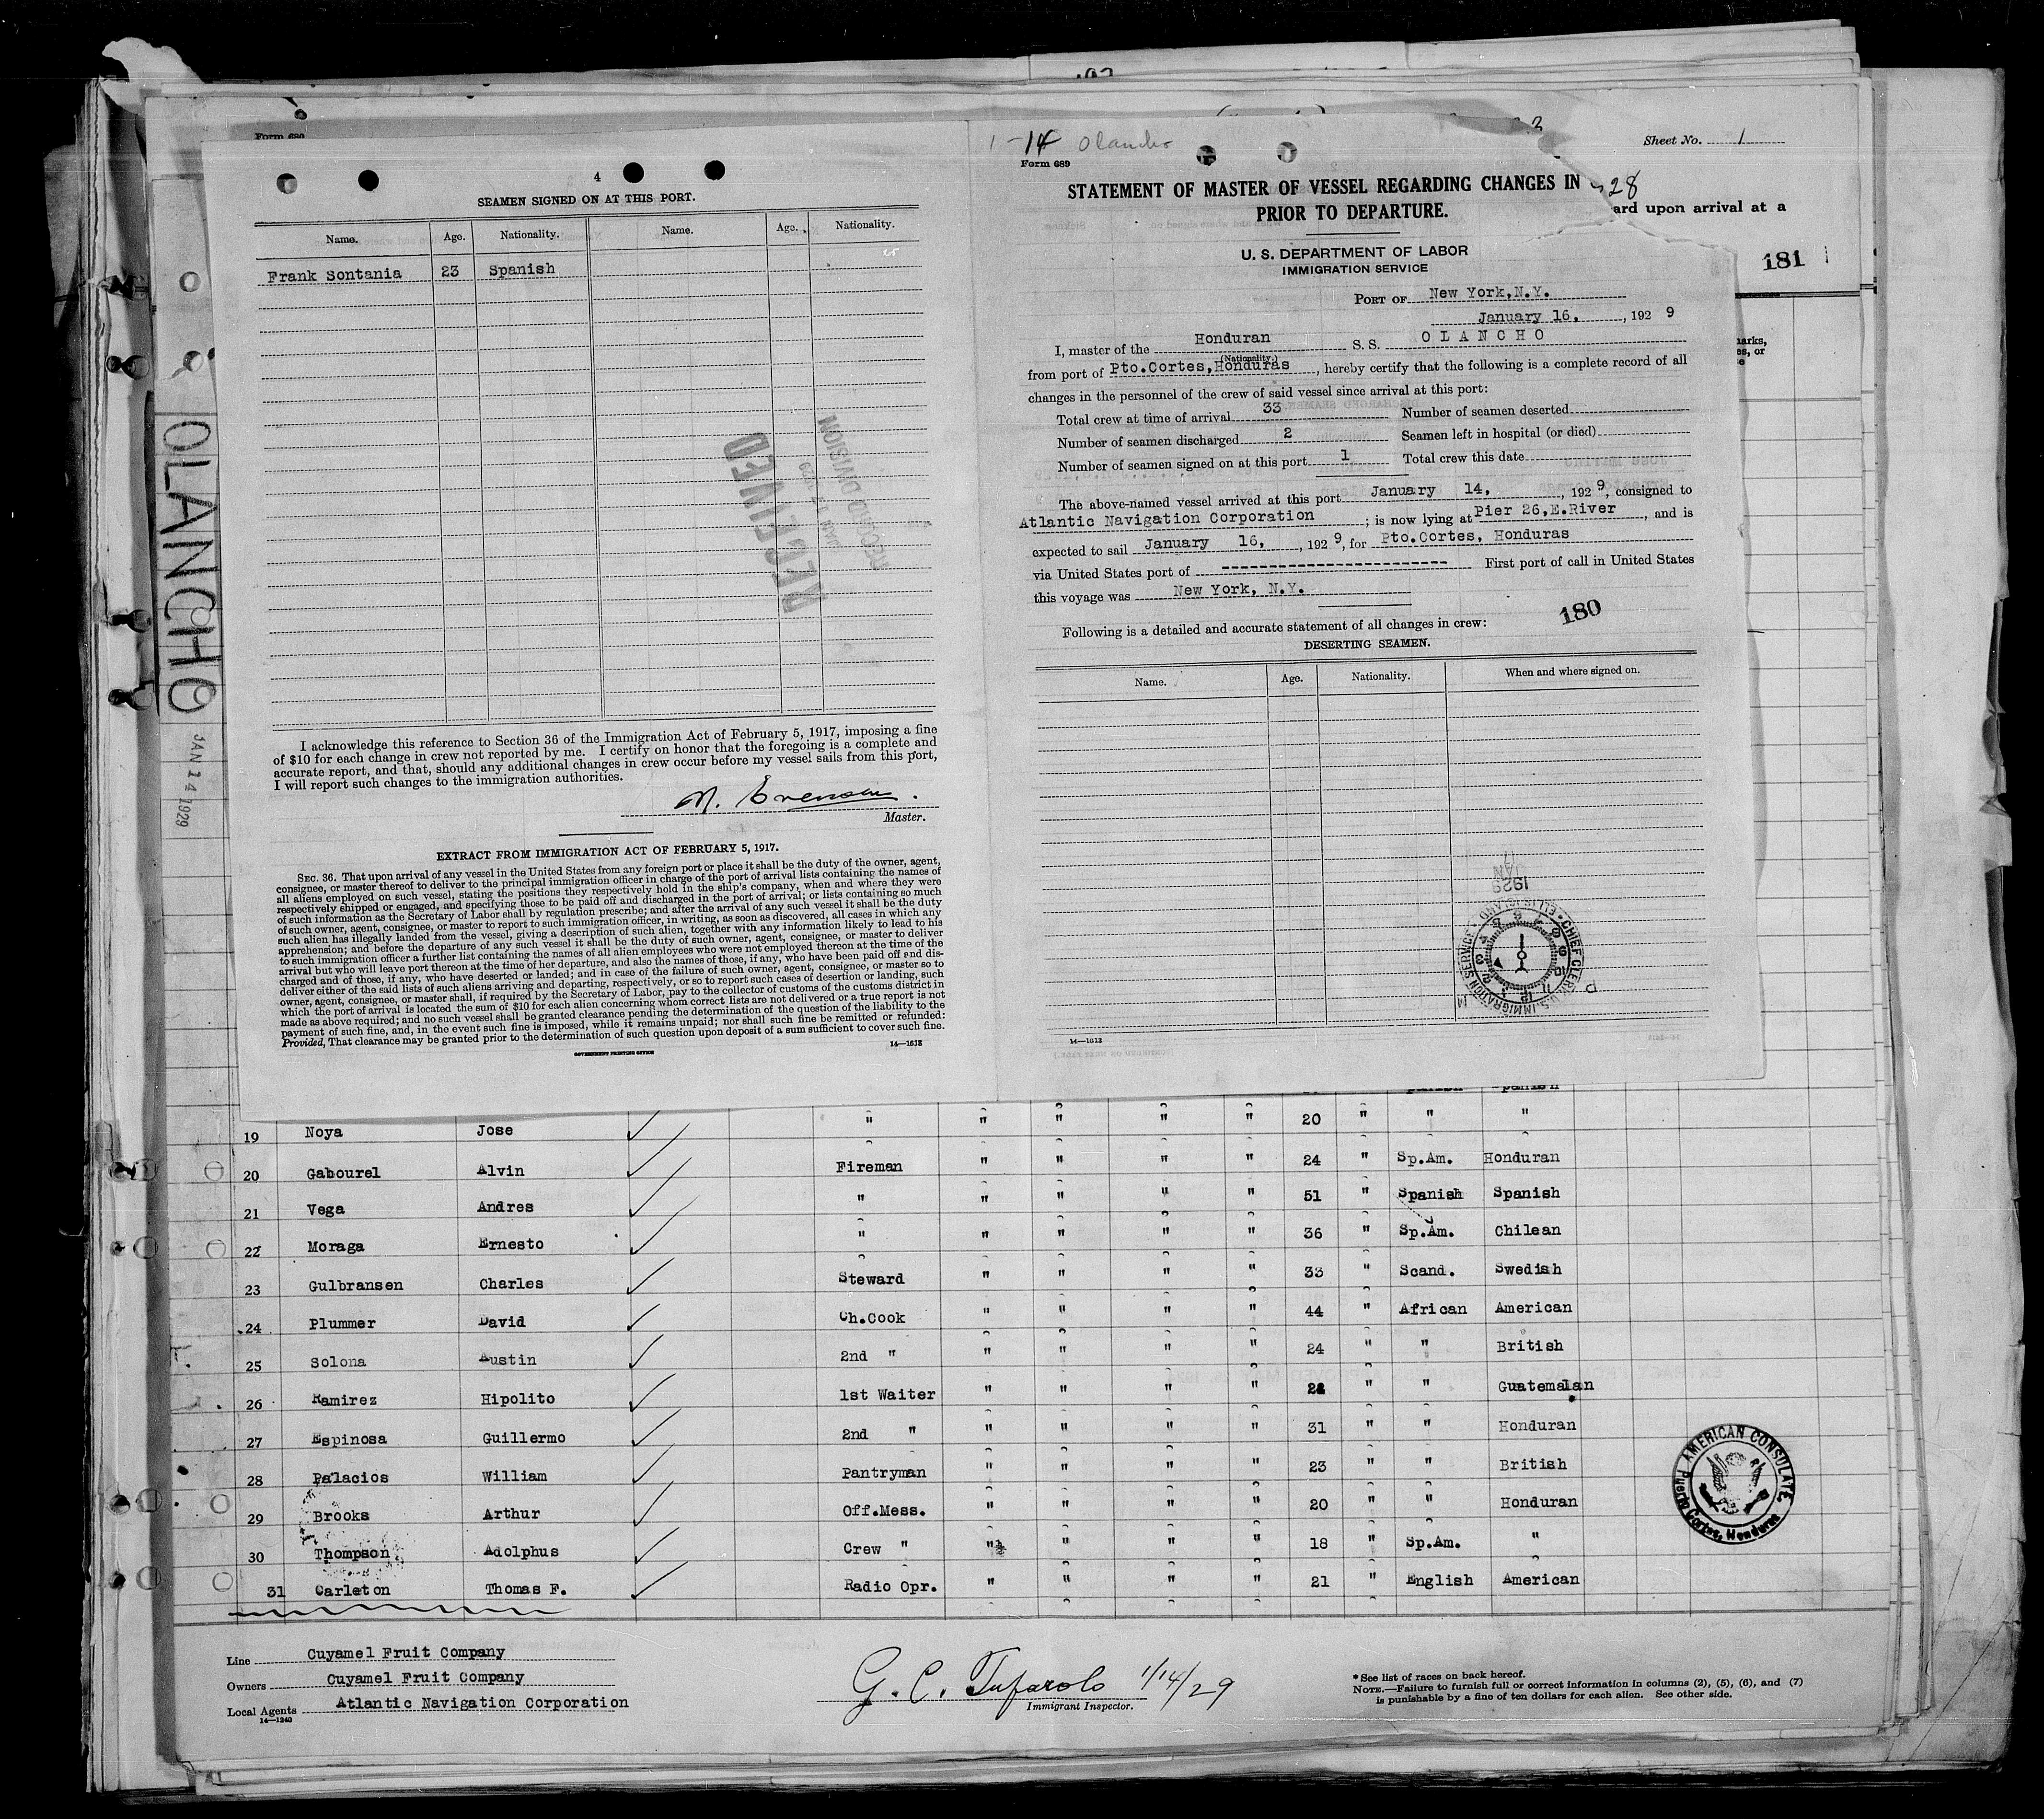 Form 689
Sheet No. 1
28
ard upon arrival at a
181
arks,
es, or
OLANCHO
JAN 14 1929
4
SEAMEN SIGNED ON AT THIS PORT.
Name. Age. Nationality. Name. Age. Nationality.
Frank Sontania 23 Spanish
RECEIVED
RECORD DIVISION
I acknowledge this reference to Section 36 of the Immigration Act of February 5, 1917, imposing a fine
of $10 for each change in crew not reported by me. I certify on honor that the foregoing is a complete and
accurate report, and that, should any additional changes in crew occur before my vessel sails from this port,
I will report such changes to the immigration authorities.
Master.
EXTRACT FROM IMMIGRATION ACT OF FEBRUARY 5, 1917.
SEC. 36. That upon arrival of any vessel in the United States from any foreign port or place it shall be the duty of the owner, agent,
consignee, or master thereof to deliver to the principal immigration officer in charge of the port of arrival lists containing the names of
all aliens employed on such vessel, stating the positions they respectively hold in the ship's company, when and where they were
respectively shipped or engaged, and specifying those to be paid off and discharged in the port of arrival; or lists containing so much
of such information as the Secretary of Labor shall by regulation prescribe; and after the arrival of any such vessel it shall be the duty
of such owner, agent, consignee, or master to report to such immigration officer, in writing, as soon as discovered, all cases in which any
such alien has illegally landed from the vessel, giving a description of such alien, together with any information likely to lead to his
apprehension; and before the departure of any such vessel it shall be the duty of such owner, agent, consignee, or master to deliver
to such immigration officer a further list containing the names of all alien employees who were not employed thereon at the time of the
arrival but who will leave port thereon at the time of her departure, and also the names of those, if any, who have been paid off and dis-
charged and of those, if any, who have deserted or landed; and in case of the failure of such owner, agent, consignee, or master so to
deliver either of the said lists of such aliens arriving and departing, respectively, or so to report such cases of desertion or landing, such
owner, agent, consignee, or master shall, if required by the Secretary of Labor, pay to the collector of customs of the customs district in
which the port of arrival is located the sum of $10 for each alien concerning whom correct lists are not delivered or a true report is not
made as above required; and no such vessel shall be granted clearance pending the determination of the question of the liability to the
payment of such fine, and, in the event such fine is imposed, while it remains unpaid; nor shall such fine be remitted or refunded:
Provided, That clearance may be granted prior to the determination of such question upon deposit of a sum sufficient to cover such fine.
GOVERNMENT PRINTING OFFICE 14—1613
1-14 Olancho
Form 689
STATEMENT OF MASTER OF VESSEL REGARDING CHANGES IN
PRIOR TO DEPARTURE.
U. S. DEPARTMENT OF LABOR
IMMIGRATION SERVICE
PORT OF New York,N.Y.
January 16, , 192 9
I, master of the Honduran S. S. O L A N C H O
(Nationality.)
from port of Pto.Cortes,Honduras , hereby certify that the following is a complete record of all
changes in the personnel of the crew of said vessel since arrival at this port:
Total crew at time of arrival 33 Number of seamen deserted
Number of seamen discharged 2 Seamen left in hospital (or died)
Number of seamen signed on at this port 1 Total crew this date
The above-named vessel arrived at this port January 14, , 192 9, consigned to
Atlantic Navigation Corporation ; is now lying at Pier 26,E.River , and is
expected to sail January 16, , 192 9, for Pto.Cortes, Honduras
via United States port of ------------------------ First port of call in United States
this voyage was New York, N.Y.
180
Following is a detailed and accurate statement of all changes in crew:
DESERTING SEAMEN.
Name. Age. Nationality. When and where signed on.
JAN 17 1929
CHIEF CLERK U.S. IMMIGRATION SERVICE ELLIS ISLAND
14—1613
19 Noya Jose " " " " " 20 " " "
20 Gabourel Alvin Fireman " " " " 24 " Sp.Am. Honduran
21 Vega Andres " " " " " 51 " Spanish Spanish
22 Moraga Ernesto " " " " " 36 " Sp.Am. Chilean
23 Gulbransen Charles Steward " " " " 33 " Scand. Swedish
24 Plummer David Ch.Cook " " " " 44 " African American
25 Solona Austin 2nd " " " " " 24 " " British
26 Ramirez Hipolito 1st Waiter " " " " 22 " " Guatemalan
27 Espinosa Guillermo 2nd " " " " " 31 " " Honduran
28 Palacios William Pantryman " " " " 23 " " British
29 Brooks Arthur Off.Mess. " " " " 20 " " Honduran
30 Thompson Adolphus Crew " " " " " 18 " Sp.Am. "
31 Carleton Thomas F. Radio Opr. " " " " 21 " English American
AMERICAN CONSULATE
Puerto Cortes, Honduras
Line Cuyamel Fruit Company
Owners Cuyamel Fruit Company
Local Agents Atlantic Navigation Corporation
14—1240
G. C. Tufarolo 1/14/29
Immigrant Inspector.
*See list of races on back hereof.
NOTE.—Failure to furnish full or correct information in columns (2), (5), (6), and (7)
is punishable by a fine of ten dollars for each alien. See other side.